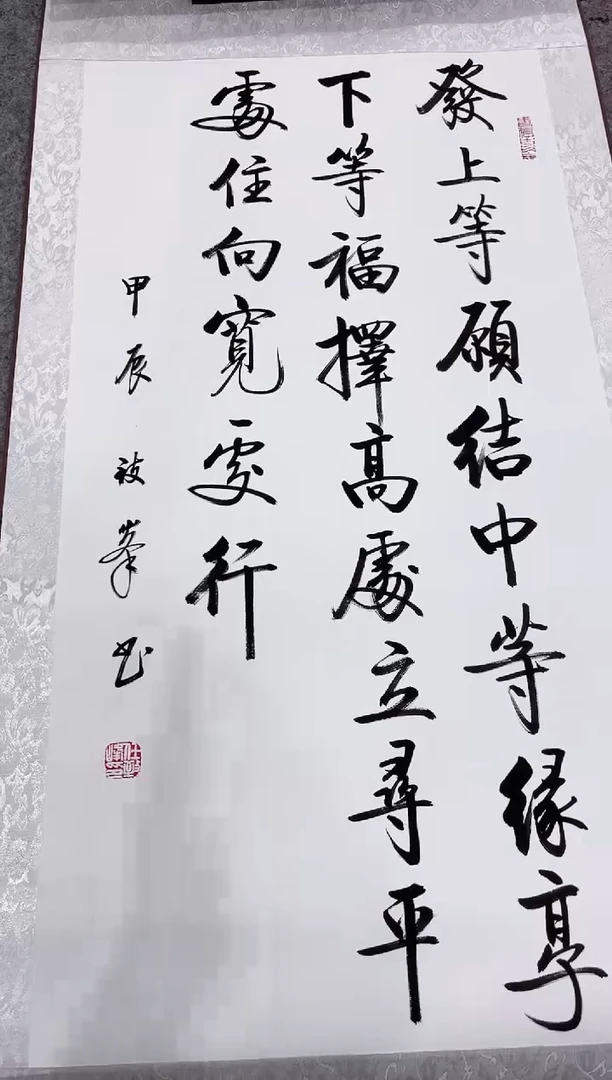 發上等願結中等緣享
下等福擇高處立尋平
處住向寬處行
甲辰 被峯书